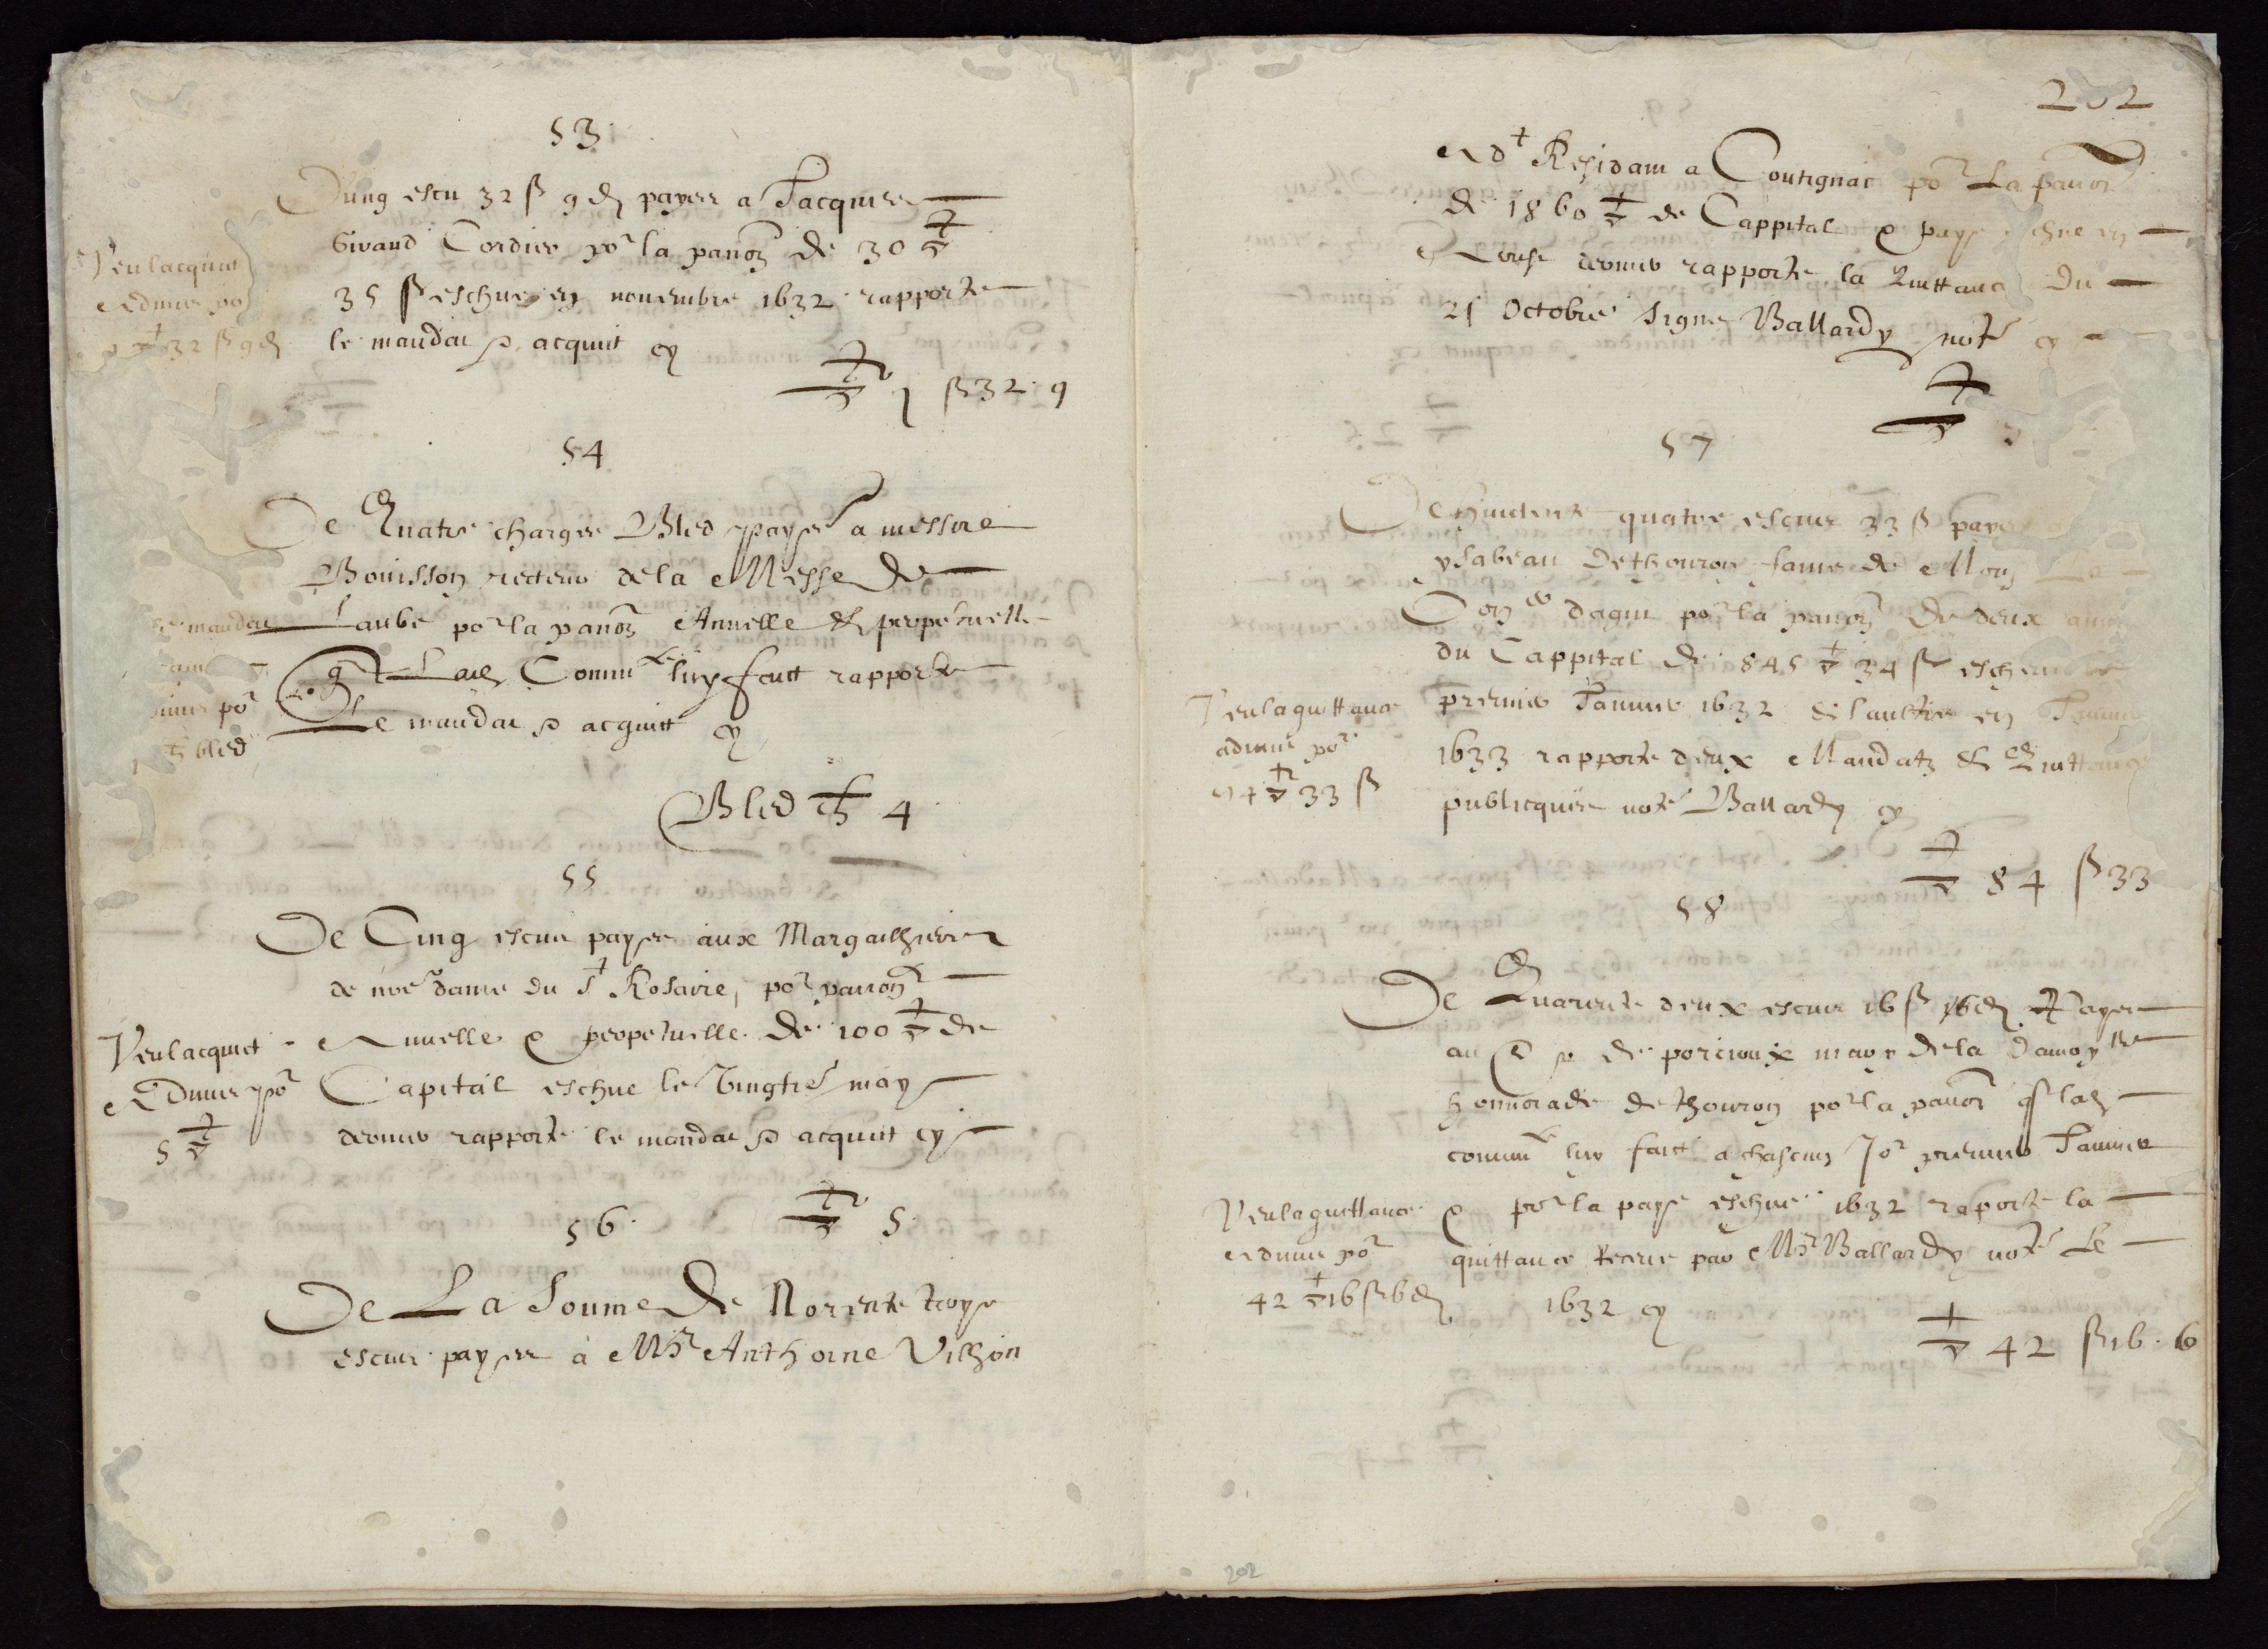 53
Dung escu 32 ß 9 d payes a Jacques
Giraud Cordier po.r la pan.on de 30 ▽
35 ß escheue en novembre 1632 rapporte
le mandat & acquit cy
▽ 1 ß 32 . 9
Veu lacquit
Admis po
▽ 32 ß 9 d
54
De Quatre charges Bled payes a messire
Bouisson recteur de la Messe de
Laube po.r la panon Annelle & perpetuelle
q lad Commu.te luy faict rapporte
Le mandat & acquit cy
Bled ch 4
mandat
po.r
ch bled
55
De Cinq escus payes aux Margailliers
de n.re dame du S.t Rosaire, po.r panon
Annelle & perpetuelle de 100 ▽ de
Capital escheue le Vingtie may
dernier rapporte le mandat & acquit cy
▽ 5
Veu lacquit
Admis po.r
5 ▽
56
De La Soume de Norente troys
escus payes a M.e Anthoine Vilhon
202
Ad.t Residant a Coutignac po.r La panon
de 1860 ▽ de Cappital & paye escheue en
dernier rapporte la Quittance Du
21 Octobre signe Ballardy not.e cy
▽
57
De huictente quatre escus 33 ß payes
ysabeau Dethouron fame de Mon. La
Con.er dagut po.r la panon De deux annees
du Cappital de 845 ▽ 34 ß escheue
premier Januier 1632 & laultre en Januier
1633 rapporte deux Mandatz & Quittance
publicques note Ballardy cy
▽ 84 ß 33
Veu la quittance
admis po.r
84 ▽ 33 ß
58
De Quarente deux escus 16 ß 6 d Payes
au s.r de porcioux mary de la damoy.lle
honnorade dethouron po.r la panon q lad
commu.te luy faict a chascun Jo.r premier Januier
& po.r la paye escheue 1632 raporte la
quittance Receue par M.e Ballardy not.e Le
1632 cy
▽ 42 ß 16 . 6
Veu la quittance
Admis po.r
42 ▽ 16 ß 6 d
202